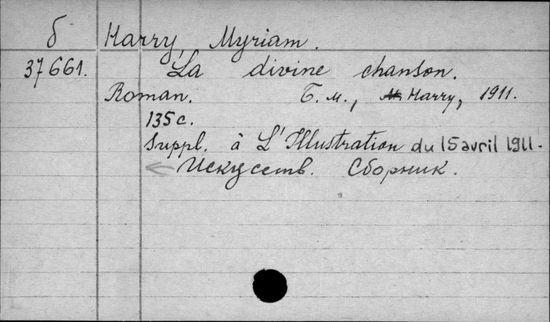 б Harry, Myriam.
37661. La divine chanson.
Roman. Б.м., Harry, 1911.
135 с.
Suppl. à L'Illustration du 15 avril 1911.
← Искусств. Сборник.